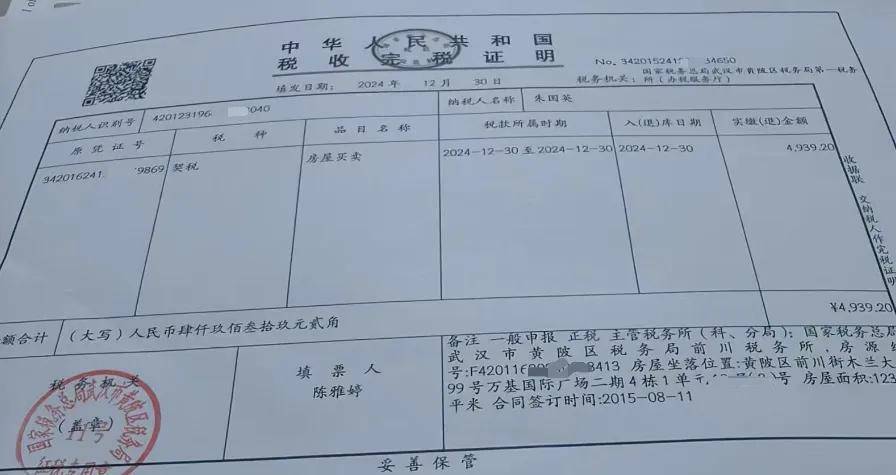 中华人民共和国
税收完税证明
No. 342015241 34650
填发日期: 2024 年 12 月 30 日
税务机关: 国家税务总局武汉市黄陂区税务局第一税务
所(办税服务厅)
纳税人识别号 420123196 040 纳税人名称 朱国英
原凭证号 税种 品目名称 税款所属时期 入(退)库日期 实缴(退)金额
342016241 9869 契税 房屋买卖 2024-12-30 至 2024-12-30 2024-12-30 4,939.20
¥4,939.20
额合计 (大写)人民币肆仟玖佰叁拾玖元贰角
税务机关
(盖章)
填票人
陈雅婷
备注 一般申报 正税 主管税务所(科、分局): 国家税务总局
武汉市黄陂区税务局前川税务所 房源编
号:F420116 3413 房屋坐落位置:黄陂区前川街木兰大
99号万基国际广场二期4栋1单元 号 房屋面积:123
平米 合同签订时间:2015-08-11
收据联 交纳税人作完税证明
国家税务总局武汉市黄陂区税务局
妥善保管